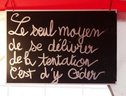 Le seul moyen
de se délivrer
de la tentation
c'est d'y céder